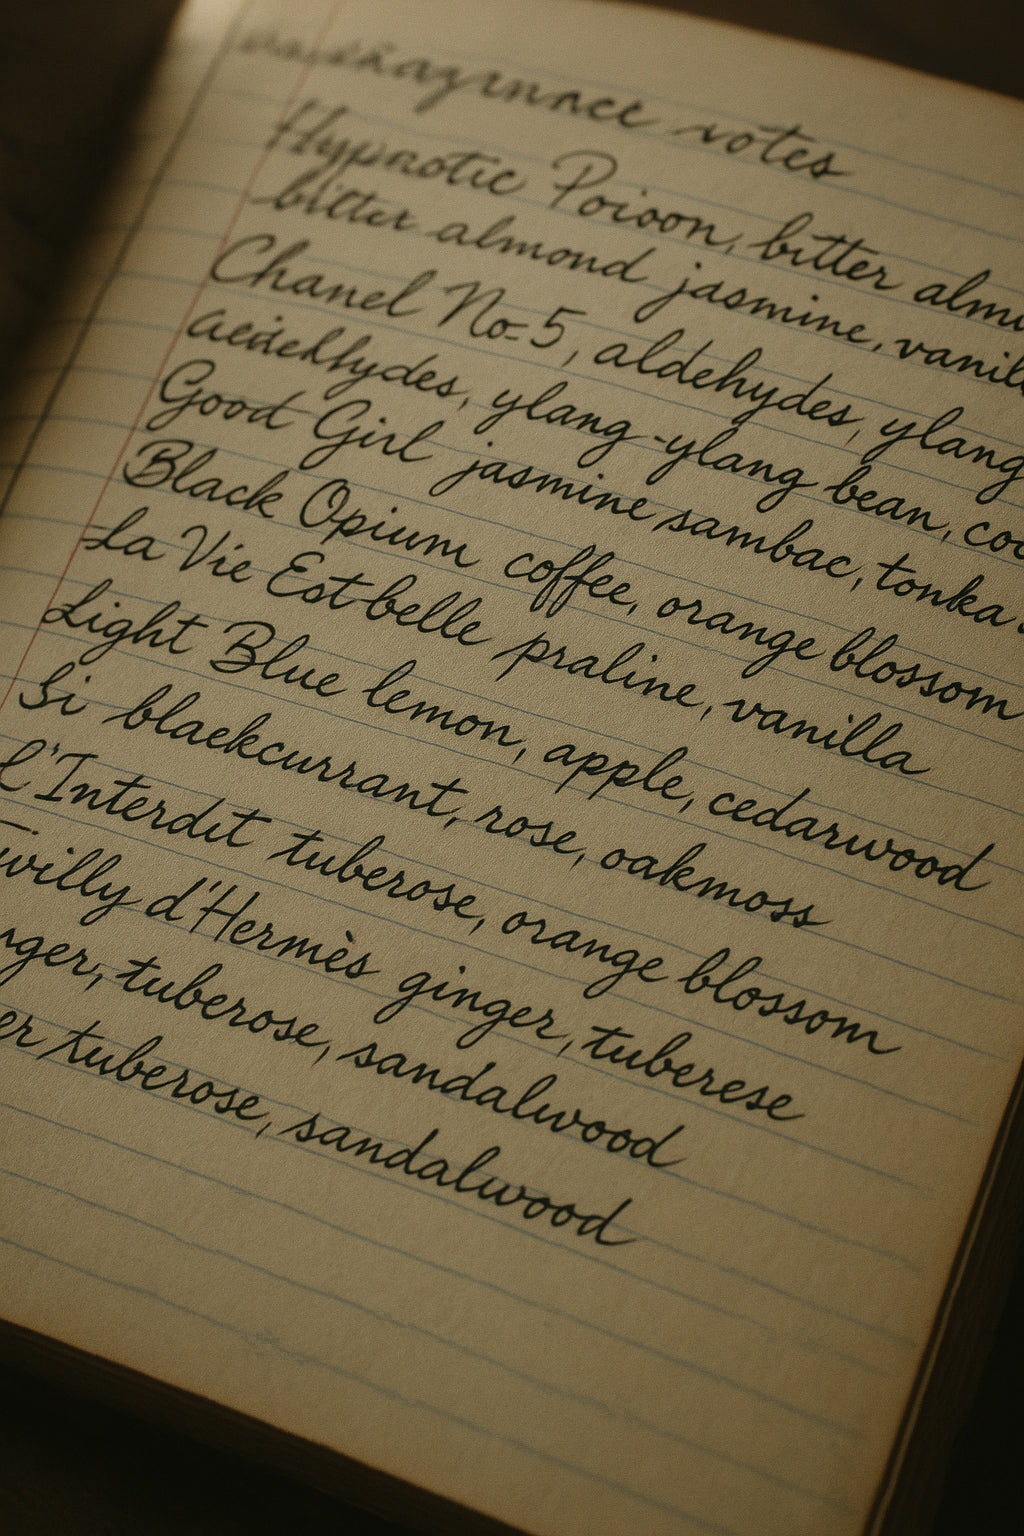 votes
Hypnotic Poioon, bitter almo
bitter almond jasmine, vanill
Chanel No-5, aldehydes, ylang
ylang-ylang bean, coc
Good Girl jasmine sambac, tonka
Black Opium coffee, orange blossom
La Vie Est-belle praline, vanilla
Light Blue lemon, apple, cedarwood
Si blaekcurrant, rose, oakmoss
l'Interdit tuberose, orange blossom
willy d'Hermès ginger, tuberese
nger, tuberose, sandalwood
er tuberose, sandalwood